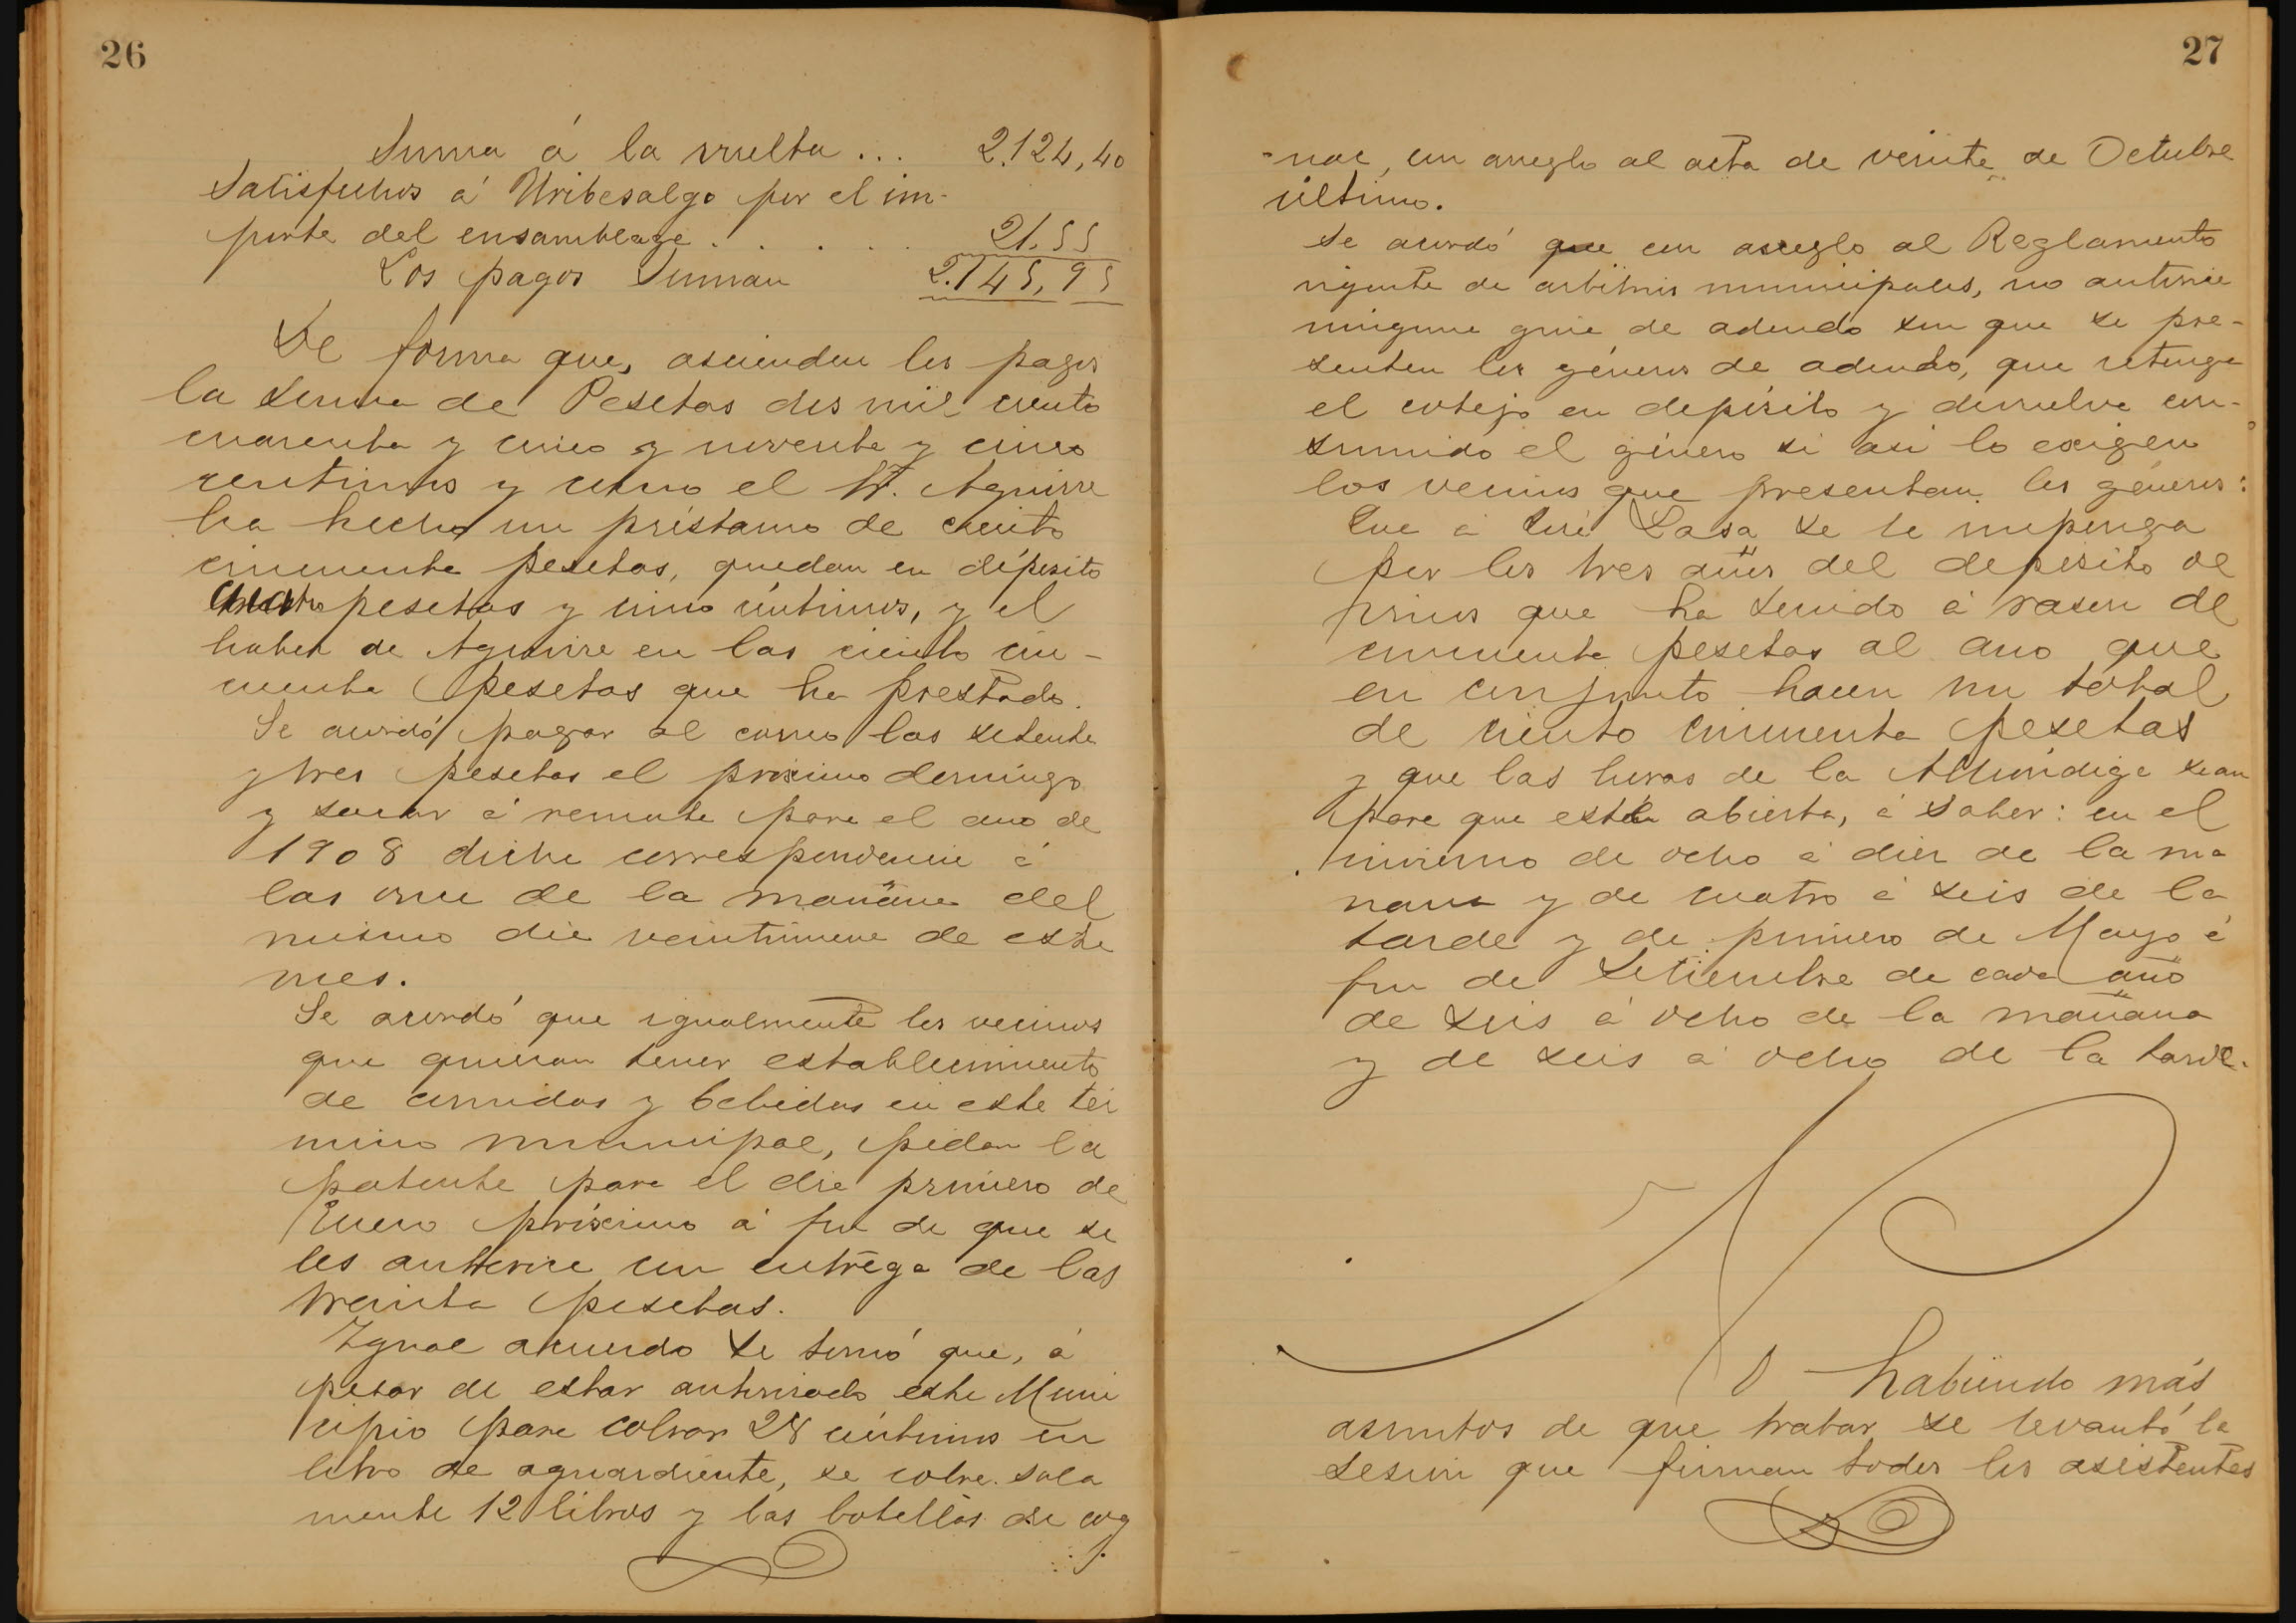 26
Suma á la vuelta ... 2.124,40
Satisfechos á Uribesalgo por el im-
porte del ensamblage . . . . . 21.55
Los pagos Suman 2.145,95
De forma que, ascienden los pagos
la suma de Pesetas dos mil ciento
cuarenta y cinco y noventa y cinco
centimos y como el Sr. Aguirre
ha hecho un préstamo de ciento
cincuenta pesetas, quedan en déposito
cuatro pesetas y cinco céntimos, y el
haber de Aguirre en las ciento cin-
cuenta pesetas que ha prestado.
Se acordó pagar al correo las setenta
y tres pesetas el proximo domingo
y sacar á remate para el año de
1908 dicha correspondencia á
las once de la mañana del
mismo dia veintinueve de este
mes.
Se acordó que igualmente los vecinos
que quieran tener establecimiento
de comidas y bebidas en este tér
mino municipal, pidan la
patente para el dia primero de
Enero próximo á fin de que se
les autorice con entrega de las
treinta pesetas.
Igual acuerdo se tomó que, á
pesar de estar autorizado este Muni
cipio para cobrar 28 céntimos en
litro de aguardiente, se cobre sola
mente 12 litros y las botellas de cog
27
-nac, con arreglo al acta de veinte de Octubre
último.
Se acordó que con arreglo al Reglamento
vigente de arbitrios municipales, no autorice
ninguna guia de adeudo sin que se pre-
senten los géneros de adeudo, que retenga
el cotejo en depósito y devuelva con-
sumido el género si asi lo exigen
los vecinos que presentan los géneros:
Que á José Lasa se le imponga
por los tres años del deposito de
pinos que ha tenido á rason de
cincuenta pesetas al ano que
en conjunto hacen un total
de ciento cincuenta pesetas
y que las horas de la Alhóndiga sean
para que esté abierta, á saber: en el
invierno de ocho á diez de la ma
nana y de cuatro á seis de la
tarde y de primero de Mayo á
fin de Setiembre de cada año
de seis á ocho de la mañana
y de seis á ocho de la tarde.
No habiendo más
asuntos de que tratar se levantó la
sesion que firman todos los asistentes